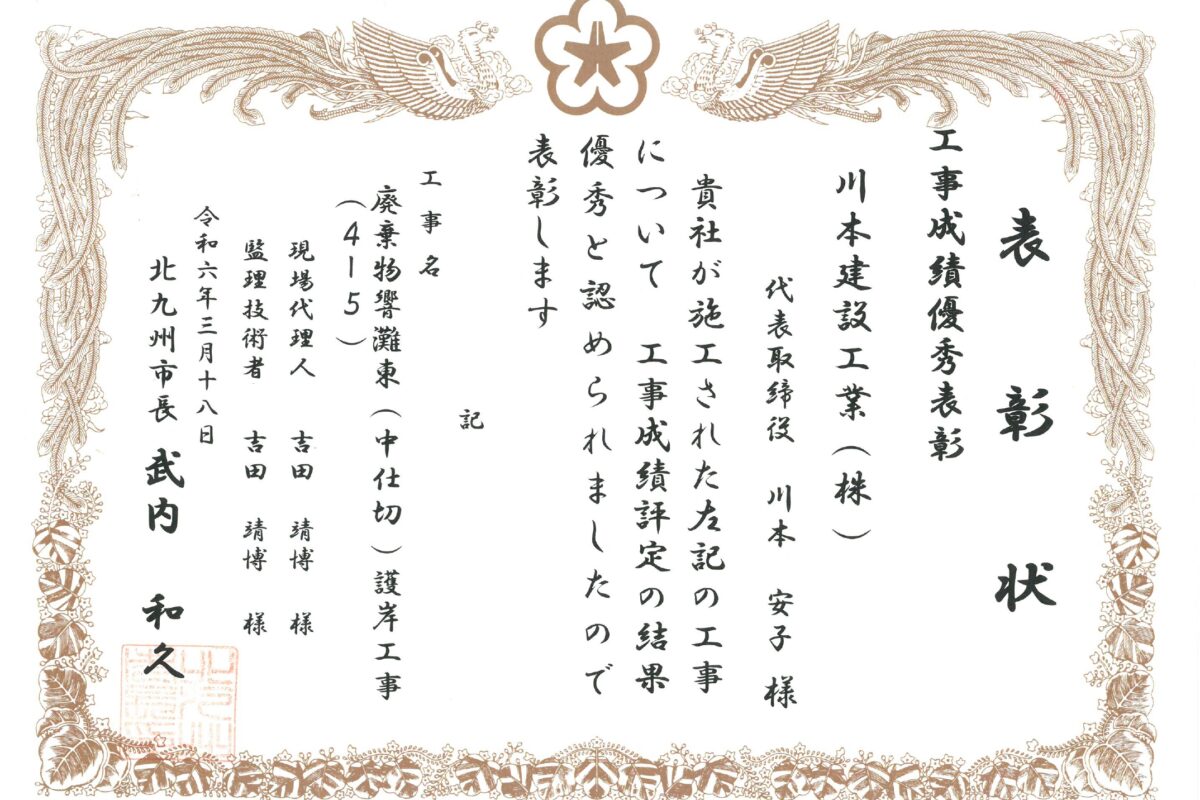 表彰状
工事成績優秀表彰
川本建設工業（株）
代表取締役　川本　安子　様
貴社が施工された左記の工事
について　工事成績評定の結果
優秀と認められましたので
表彰します
記
工事名
廃棄物響灘東（中仕切）護岸工事
（4-5）
現場代理人　吉田　靖博　様
監理技術者　吉田　靖博　様
令和六年三月十八日
北九州市長　武内　和久